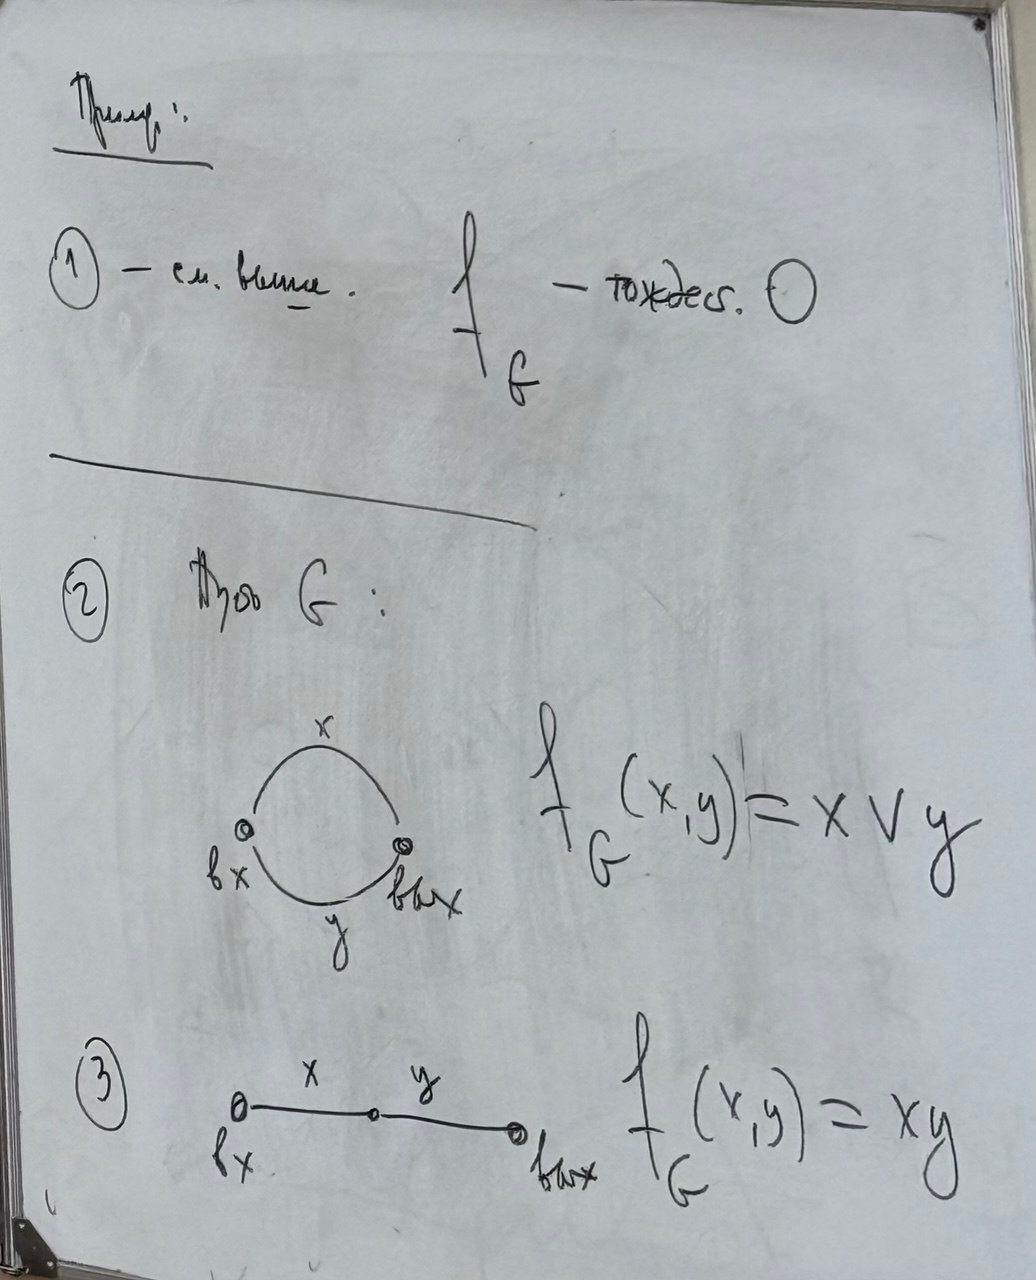 Пример:
① – см. выше. f_G – тождеств. 0
② Пусть G:
x
вх
вых
y
f_G(x,y) = x ∨ y
③
x y
вх
вых
f_G(x,y) = xy